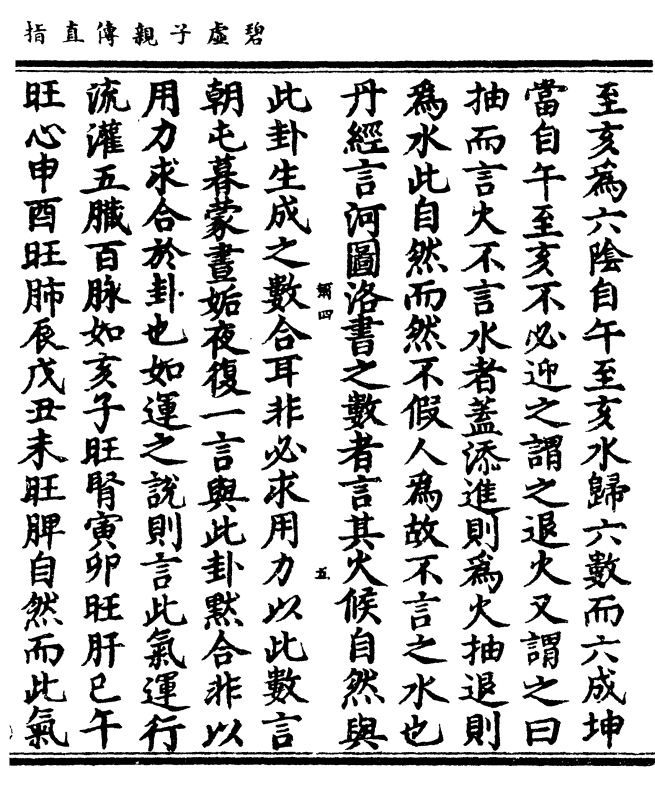 碧虛子親傳直指
至亥爲六陰自午至亥水歸六數而六成坤
當自午至亥不必迎之謂之退火又謂之曰
抽而言火不言水者蓋添進則爲火抽退則
爲水此自然而然不假人爲故不言之水也
丹經言河圖洛書之數者言其火候自然與
弼四
五
此卦生成之數合耳非必求用力以此數言
朝屯暮蒙晝姤夜復一言與此卦默合非以
用力求合於卦也如運之說則言此氣運行
流灌五臟百脉如亥子旺腎寅卯旺肝巳午
旺心申酉旺肺辰戊丑未旺脾自然而此氣